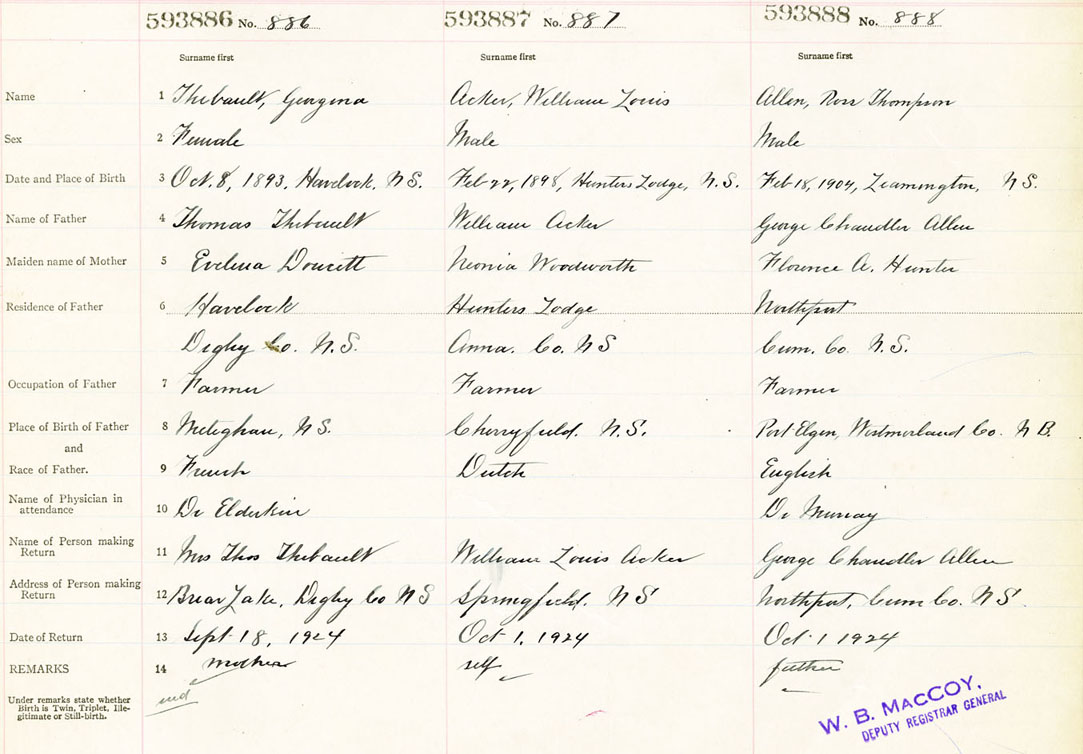 593886 No. 886 593887 No. 887 593888 No. 888
Surname first Surname first Surname first
Name 1 Thibault, Georgina Acker, William Louis Allen, Ross Thompson
Sex 2 Female Male Male
Date and Place of Birth 3 Oct. 8, 1893, Havelock, N.S. Feb 22, 1898, Hunters Lodge, N.S. Feb 18, 1904, Leamington, N.S.
Name of Father 4 Thomas Thibault William Acker George Chandler Allen
Maiden name of Mother 5 Evelina Doucett Woodworth Florence A. Hunter
Residence of Father 6 Havelock Hunters Lodge Northport
Digby Co. N.S. Anna. Co. N S Cum. Co. N.S.
Occupation of Father 7 Farmer Farmer Farmer
Place of Birth of Father 8 Meteghan, N S. Cherryfield. N.S. Port Elgin, Westmorland Co. N B.
and
Race of Father. 9 French Dutch English
Name of Physician in
attendance 10 Dr Elderkin Dr Murray
Name of Person making
Return 11 Mrs Thos Thibault William Louis Acker George Chandler Allen
Address of Person making
Return 12 Briar Lake, Digby Co N S Springfield. N S Northport, Cum Co. N S
Date of Return 13 Sept 18, 1924 Oct 1, 1924 Oct 1 1924
REMARKS 14 mother self father
Under remarks state whether
Birth is Twin, Triplet, Ille-
gitimate or Still-birth.
W. B. MACCOY,
DEPUTY REGISTRAR GENERAL